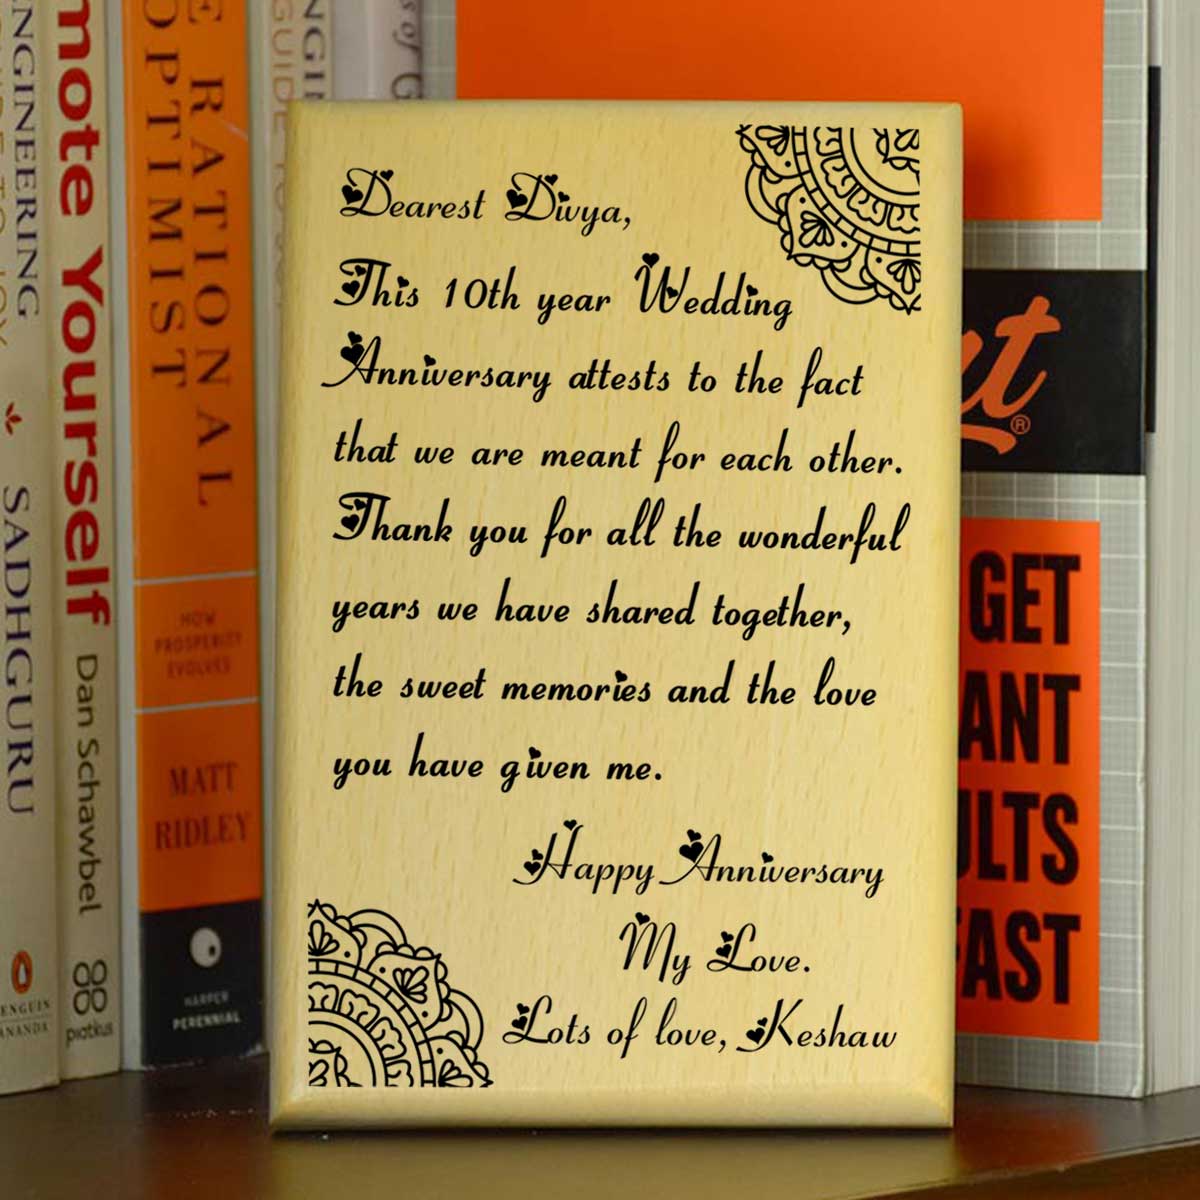 ENGINEERING
SADHGURU
PENGUIN
ANANDA
mote Yourself
Dan Schawbel
piatkus
E RATIONAL
OPTIMIST
HOW
PROSPERITY
EVOLVES
MATT
RIDLEY
HARPER
PERENNIAL
Dearest Divya,
This 10th year Wedding
Anniversary attests to the fact
that we are meant for each other.
Thank you for all the wonderful
years we have shared together,
the sweet memories and the love
you have given me.
Happy Anniversary
My Love.
Lots of love, Keshaw
GET
ANT
ULTS
FAST